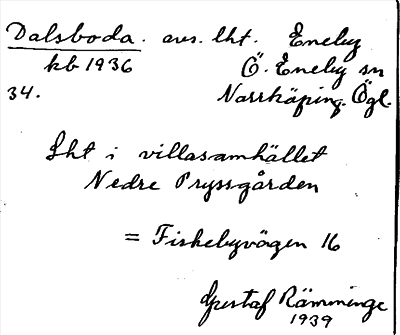 Dalsboda. avs. lht. Eneby
kb 1936 Ö. Eneby sn
34. Norrköping. Ögl.
Lht i villasamhället
Nedre Pryssgården
= Fiskebyvägen 16
Gustaf Rämminge
1939